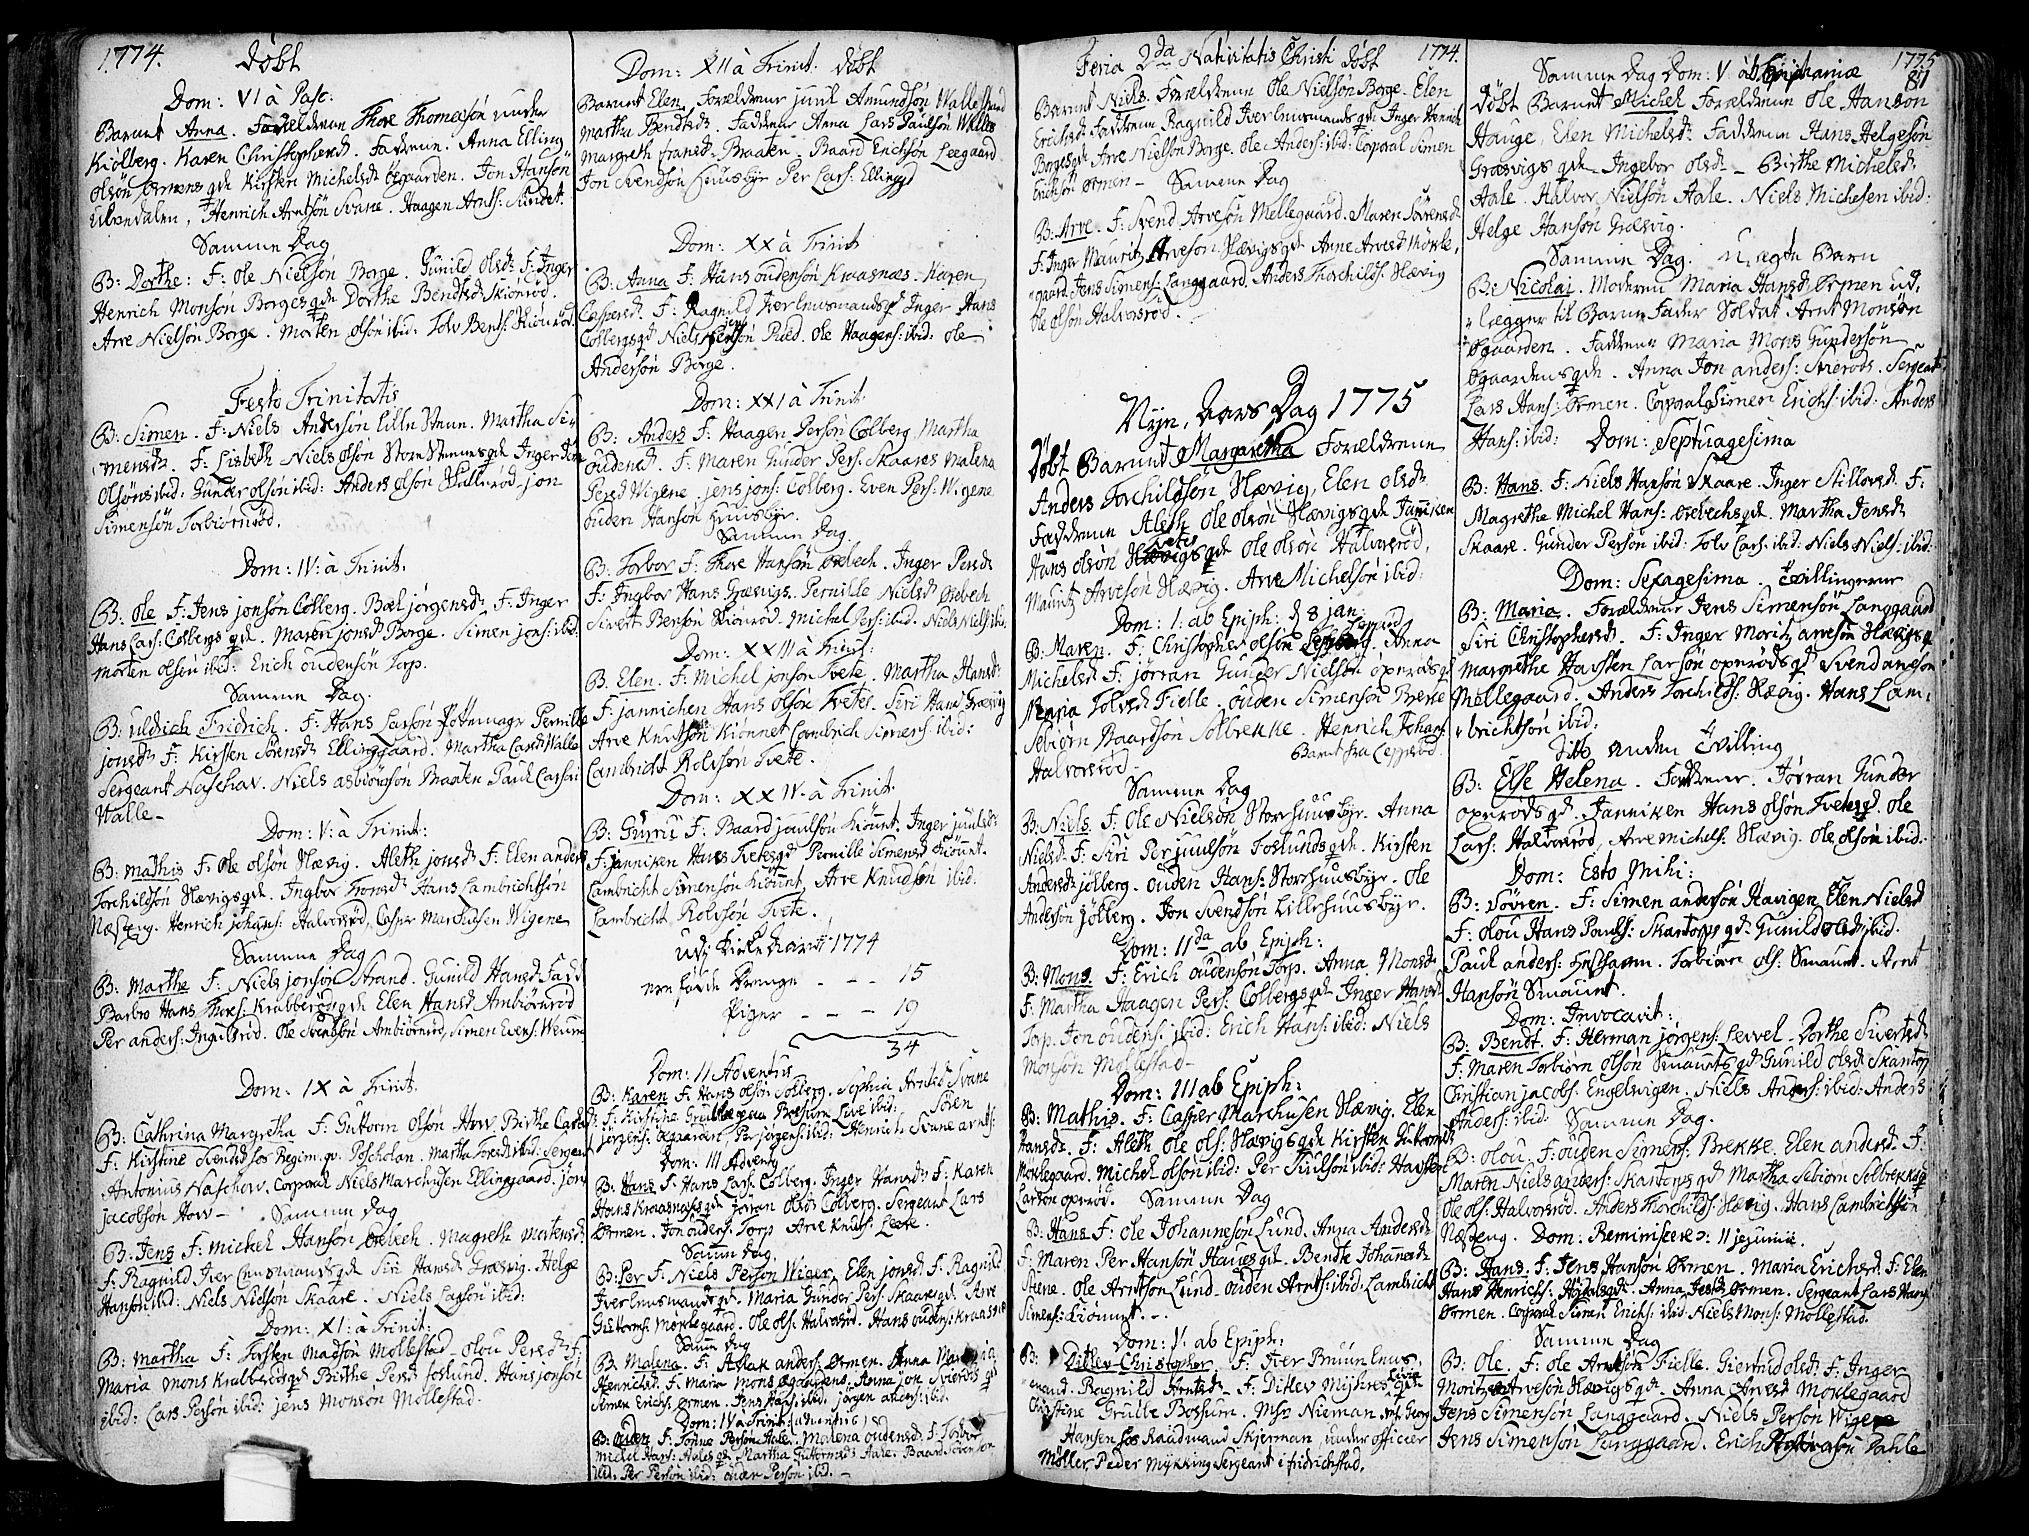 1774. Døbt
Dom: VI à Pasc:
Barnet Anna. Forældrene Thore Thomæsøn under
Kiølberg. Karen Christophersd. Faddere. Anna Elling
Olsøn Ørmens qde Kirsten Michelsd: Øgaarden. Jon Hansøn
Ulvedalen, Henrich Arntsøn Svane. Haagen Arnts: Sundet.
Samme Dag
B: Dorthe: F: Ole Nielsøn Borge. Gunild Olsd: F: Inger
Henrich Monsøn Borges qde Dorthe Bendtsd Skiørrød.
Arve Nielsøn Borge. Morten Olsøn ibid: Tolv Bents: Skiørrød.
Festo Trinitatis
B: Simen. F: Niels Andersøn Lille Steun. Martha Si-
mensd. F: Lisbeth Niels Olsøn Store Steunes qde Inger
Olsøns ibid: Gunder Olsøn ibid: Anders Olsøn Skillerød Jon
Simensøn Torbiørnrød.
Dom: IV: à Trinit.
B: Ole F: Jens Jonsøn Colberg. Boel Jørgensd: F: Inger
Hans Lars: Colbergs qde. Maren Jonsd Borge. Simen Jons: ibid:
Morten Olsøn ibid: Erich Oudensøn Torp.
Samme Dag.
B: Uldrich Fridrich. F: Hans Larsøn Pottemager Pernille
Jonsd: F: Kirsten Sørensd: Ellinggaard. Martha Larsd: Walle
Sergeant Naschov. Niels Asbiørnsøn Maaten Paul Larsøn
Walle-
Dom: V: à Trinit:
B: Mathis F: Ole Olsøn Slævig. Aleth Jonsd: F: Elen Anders
Torchildsøn Slævigs qde. Ingbor Tronsd: Hans Lambrichtsøn
Næsseng. Henrich Johans: Halvorsrød, Casper Marchusen Wigene
Samme Dag
B: Marthe F: Niels Jonsøn Strand. Gunild Hansd: Fadd
Barbro Hans Thors: Krabberøds qde Elen Hansd Ambiørnrød
Per Anders: Ingulsrød. Ole Svendsøn Ambiørnrød, Simen Evens: Weum
Dom: IX à Trinit.
B: Cathrina Margretha F: Guttorm Olsøn How. Birthe Carls
F: Kirstine Svendsd hos Regim: qv: Poscholan. Martha Toresd: ibid: Sergeant
Antonius Naschow. Corporal Niels Marchusen Ellinggaard. Jørn
Jacobsøn How - Samme Dag
B: Jens F: Mickel Hansøn Ørebech. Magreth Mortensd:
F: Ragnild Iver Lensmands qde Siri Hansd: Græsvig. Helge
Hansøn ibid: Niels Nielsøn Skaare. Niels Larsøn ibid:
Dom: XI: à Trinit:
B: Martha F: Torsten Madsøn Møllestad - Olou Persd: F:
Maria Mons Krabberøds qd Birthe Persd: Foslund. Hans Jonsøn
ibid: Lars Persøn ibid: Jens Monsøn Møllestad.
Dom: XII à Trinit. Døbt
Barnet Elen, Forældrene Juul Amundsøn Wallestrand
Martha Bendtsd: Faddere Anna Lars Paulsøn Walles
Margreth Fransd: Braaten. Baard Erichsøn Leegaard
Jon Svendsøn Huusbye Per Lars: Ellinggd
Dom: XX à Trinit
B: Anna F: Hans Oudensøn Kraasnæs. Karen
Caspersd. F: Ragnild Iver Lensmands qd Inger Hans
Colbergs qd Niels Jensøn Rød. Ole Haagens: ibid: Ole
Andersøn Borge.
Dom: XXI à Trinit:
B: Anders F: Haagen Persøn Colberg, Martha
Oudensd. F: Maren Gunder Pers: Skaares Malena
Persd Wigene. Jens Jons: Colberg. Even Pers: Wigene
Ouden Hansøn Huusbye.
Samme Dag.
B: Torbor F: Thore Hansøn Ørebech. Inger Persd:
F: Ingbor Hans Græsvigs. Pernille Nielsd: Ørebech
Sivert Bensøn Skiørrød. Michel Pers: ibid. Niels Niels: ibid:
Dom: XXIII à Trinit:
B. Elen. F: Michel Jonsøn Tvete. Martha Hansd:
F: Jannichen Hans Olsøn Tvetes. Siri Hansd Græsvig
Arve Knutsøn Kiønnet Lambrich Simens: ibid:
Lambricht Rolvsøn Tvete.
Dom: XXIV à Trinit.
B: Guri F: Baard Juulsøn Kiønnt. Inger Juulsd:
F: Janniken Hans Tvetes qd Pernille Simensd Kiønnt.
Lambricht Simensøn Kiønnt. Arve Knudsøn ibid.
Lambricht Rolvsøn Tvete.
Udj Kirke Aaret 1774
ere fødde Drenge - - - 15
Piger - - - 19
34
Dom: II Adventus
B: Karen F: Hans Olsøn Solberg. Sophia Arntsd: Svane
F: Kirstine Grubbe Bossum Live ibid: Søren
Jørgens: Øgaarden. Per Jørgens: ibid: Henrich Svane Arnts:
Dom: III Advent9
B: Hans F: Hans Lars: Colberg. Inger Hansd: F: Karen
Hans Kraasnæs qde Jøran Olsd: Colberg. Sergeant Lars
Ørmen. Jon Ouders: Torp Arve Knuts: Leete.
Samme Dag.
B: Per F: Niels Persøn Wiger. Elen Jonsd: F: Ragnild
Iver Lensmands qd. Maria Gunder Pers: Skaares qd. Arve
Guttorms: Mørkegaard. Ole Ols: Halvorsrød. Hans Oudens: Kraasnæs
Samme Dag
B: Malena. F: Aslak Anders: Ørmen. Anna Maria
Henrichsd: F: Maria Mons Øgaardens. Anna Jon
Simen Erichs: Ørmen. Jens Hans: ibid: Jørgen Anders: ibid:
Dom: IV à Adventus
B: Ouden F: Tønne Persøn Aale. Malena Oudensd: F: Torbor
Michel Hans: Aales qd Martha Guttormsd: Aale. Baard Sørensøn
ibid: Per Persøn ibid: Ouden Persøn ibid. -
Feria 2da Nativitatis Christi Døbt 1774.
Barnet Niels. Forældrene Ole Nielsøn Borge. Elen
Erichsd: Faddere Ragnild Iver Lensmands qd: Inger Henrich
Borges qde Arve Nielsøn Borge. Ole Anders: ibid: Corporal Simen
Erichsøn Ørmen - Samme Dag
B: Arve. F: Svend Arvesøn Mellegaard. Maren Sørensd:
F: Inger Mauritz Arvesøn Slævigs qd Anne Arvesd Mørke,
gaard. Jens Simens: Langgaard. Anders Thorchilds: Slævig
Ole Olsøn Halvorsrød.
Nye, Aars Dag 1775
Døbt Barnet Margaretha Forældrene
Anders Torchildsøn Slævig, Elen Olsd:
Faddere Aleth Ole Olsøn Slævigs qde Janniken
Hans Olsøn Tvetes qde Ole Olsøn Halvorsrød,
Mauritz Arvesøn Slævig. Arve Michelsøn ibid:
Dom: I: ab Epiph: d 8 Jan:
B: Maren. F: Christopher Olsøn Anna
Michelsd: F: Jørran Gunder Nielsøn Opnrøds qd
Maria Tolvsd Fielle. Ouden Simensøn Brekke
Sebiørn Baardsøn Solbrekke. Henrich Johans
Halvorsrød. Barnet fra Leppsrød
Samme Dag
B: Niels. F: Ole Nielsøn Storehuusbye. Anna
Nielsd: F: Siri Per Juulsøn Foslunds qde. Kirsten
Andersd: Jølberg. Ouden Hans: Storehuusbye. Ole
Andersøn Jølberg. Jon Svendsøn Lillehuusbye.
Dom: IIda ab Epiph:
B: Mons. F: Erich Oudensøn Torp. Anna Monsd:
F: Martha Haagen Pers: Colbergs qde Inger Hansd
Torp. Jon Oudens: ibid: Erich Hans: ibid: Niels
Monsøn Møllestad-
Dom: III ab Epiph:
B: Mathis. F: Casper Marchusen Slævig. Elen
Hansd: F: Aleth Ole Ols: Slævigs qde Kirsten Guttormsd
Mørkegaard. Michel Olsøn ibid: Per Juulsøn ibid: Havsten
Larsøn Opnrød. Samme Dag
B: Hans F: Ole Johannesøn Lund. Anna Andersd:
F: Maren Per Hansøn Haves qd. Bendte Johansd:
Steene. Ole Arntsøn Lund. Ouden Arnts: ibid: Lambricht
Simens: Kiønnet. -
Dom: V: ab Epiph:
B: Ditlev Christopher. F: Iver Bruun Lens,
mand. Ragnild Arntsd - F: Ditlev qd:
Christine Grubbe Bossum. Msr Nieman Msr Georg
Hansen hos Raadmand Skjerman, under officier
Møller, Peder Mykking Sergeant i Fridrichstad.
1775
81
Samme Dag Dom: V ab Epiphaniæ
Døbt Barnet Michel Forældrene Ole Hansøn
Hauge, Elen Michelsd: Faddere Hans Helgesøn
Græsvigs qde Ingebor Olsd - Birthe Michelsd:
Aale. Halvor Nielsøn Aale. Niels Michelsen ibid:
Helge Hansøn Græsvig.
Samme Dag. U, ægte Barn
B: Nicolai. Moderen Maria Hansd: Ørmen ud,
lægger til Barne Fader Soldat Arnt Monsøn
Øgaarden. Faddere Maria Mons Gundersøn
Øgaardens qde. Anna Jon Anders: Snerøds. Sergeant
Lars Hans: Ørmen. Corporal Simen Erichs: ibid: Anders
Hans: ibid: Dom: Septuagesima
B: Hans. F: Niels Hansøn Skaare. Inger Stillovsd. F:
Magrethe Michel Hans: Ørebechs qde. Martha Jensd:
Skaare. Gunder Persøn ibid: Tolv Lars: ibid: Niels Niels: ibid:
Dom: Sexagesima. Tvillingerne
B: Maria. Forældrene Jens Simensøn Langgaard
Siri Christophersd. F: Inger Moritz Arvesøn Slævigs q
Margrethe Havsten Larsøn Opnrøds qd Svend Arvesøn
Mellegaard. Anders Torchilds: Slævig. Hans Lam,
brichtsøn ibid:
Dito anden Tvilling
B: Else Helena. Faddere. Jørran Gunder
Opnrøds qd. Janniken Hans Olsøn Tvetes qd. Ole
Lars: Halvorsrød, Arve Michels: Slævig. Ole Olsøn ibid.
Dom: Esto Mihi:
B: Søvren. F: Simen Andersøn Havigen, Elen Nielsd
F: Olou Hans Pauls: Skantorps qd: Gunild Olsd: ibid.
Paul Anders: Huthavn. Torbiørn Ols: Smaunt. Arnt
Hansøn Smaunt.
Dom: Invocavit:
B: Bendt. F: Herman Jørgens: Levvel. Dorthe Sivertsd:
F: Maren Torbiørn Olsøn Smaunts qd Gunild Olsd Skantorp
Christian Jacobs: Engelsvigen. Niels Anders: ibid: Anders
Anders: ibid: Samme Dag.
B: Olou. F: Ouden Simens: Brekke. Elen Andersd: F:
Maren Niels Anders: Skantorps qd Martha Sebiørn Solbrekke qd
Ole Ols: Halvorsrød. Anders Thorchilds: Slævig. Hans Lambrichtsøn
Næsseng. Dom: Reminiscere: II jejunii.
B: Hans. F: Jens Hansøn Ørmen. Maria Erichsd. F: Elen
Hans Henrichs: qd. Anna Jensd: Ørmen. Sergeant Lars Hans:
Ørmen. Corporal Simen Erichs: ibid. Niels Mons: Møllestad.
Samme Dag
B: Ole. F: Ole Arntsøn Fielle. Giertrud Olsd: F: Inger
Moritz Arvesøn Slævigs qd. Anna Arvesd Mørkegaard
Jens Simensøn Langgaard. Niels Persøn Wigene
Jens Simensøn Langgaard. Erich Dahle